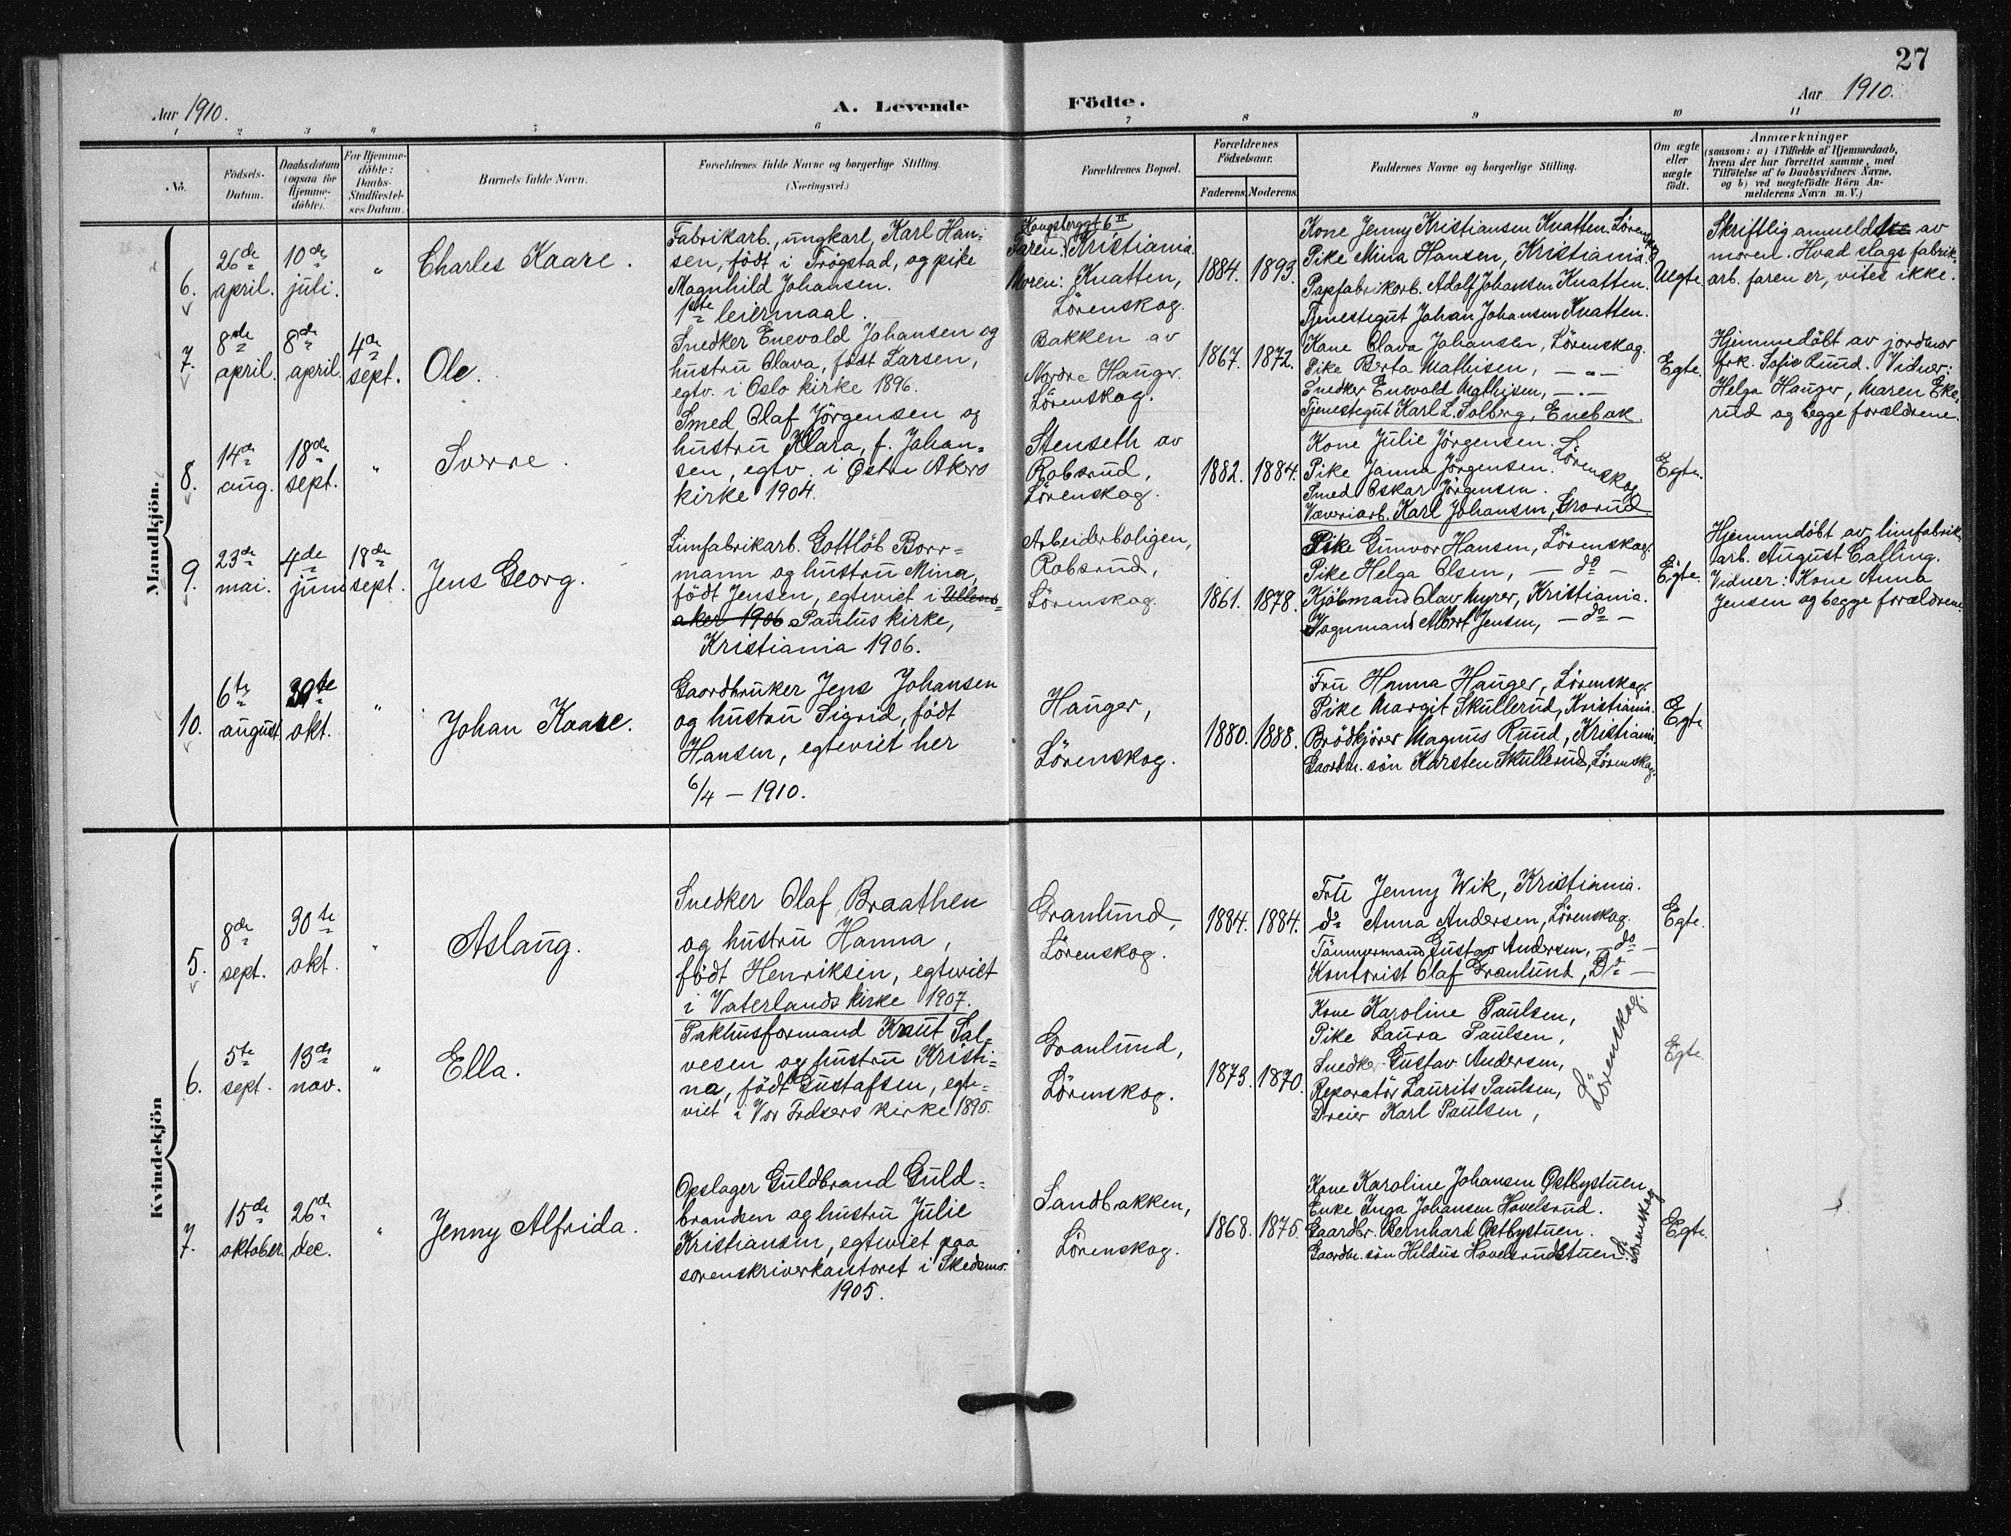 27
Aar 1910.
A. Levende Födte.
Aar 1910.
1 2 3 4 5 6 7 8 9 10 11
No.
Födsels-
Datum.
Daabsdatum
(ogsaa for
Hjemme-
döbte).
For Hjemme-
döbte:
Daabs-
Stadfæstel-
ses Datum.
Barnets fulde Navn.
Forældrenes fulde Navne og borgerlige Stilling.
(Næringsvei.)
Forældrenes Bopæl.
Forældrenes
Födselsaar.
Faderens. Moderens.
Faddernes Navne og borgerlige Stilling.
Om ægte
eller
uægte
födt.
Anmærkninger
(saasom: a) i Tilfælde af Hjemmedaab,
hvem der har forrettet samme, med
Tilföielse af to Daabsvidners Navne,
og b) ved uægtefödte Börn An-
melderens Navn m. V.)
Mandkjön.
6.
26de
april.
10de
juli.
"
Charles Kaare.
Fabrikarb., ungkarl, Karl Han-
sen, födt i Trögstad, og pike
Magnhild Johansen.
1ste leiermaal.
Faren: Kristiania
Moren: Knatten,
Lörenskog.
1884.
1893.
Kone Jenny Kristiansen Knatten Lörenskog
Pike Mina Hansen, Kristiania
Papfabrikarb. Adolf Johansen Knatten.
Tjenestegut Johan Johansen Knatten.
Uegte.
Skriftlig anmeld av
moren. Hvad slags fabrik-
arb. faren er, vites ikke.
7.
8de
april.
8de
april.
4de
sept.
Ole.
Snedker Enevald Johansen og
hustru Olava, födt Larsen,
egtv. i Oslo kirke 1896.
Bakken av
Nordre Hauger.
Lörenskog.
1867.
1872.
Kone Olava Johansen, Lörenskog.
Pike Berta Mathisen, — " —
Snedker Enevald Mathisen, — " —
Tjenestegut Karl L. Solberg, Enebak.
Egte.
Hjemmedöbt av jordmor
frk. Sofie Ruud. Vidner:
Helga Hauger, Maren Eke-
rud og begge forældrene.
8.
14de
aug.
18de
sept.
"
Sverre.
Smed Olaf Jörgensen og
hustru Klara, f. Johan-
sen, egtv. i Östre Akers
kirke 1904.
Stenseth av
Robsrud,
Lörenskog.
1882.
1884.
Kone Julie Jörgensen.
Pike Janna Jörgensen.
Smed Oskar Jörgensen.
Væveriarb. Karl Johansen, Grorud
Lörenskog
Egte.
9.
23de
mai.
4de
juni
18de
sept.
Jens Georg.
Limfabrikarb. Gottlöb Borr-
mann og hustru Mina,
födt Jensen, egteviet i Ullens-
aker 1906 Paulus kirke,
Kristiania 1906.
Arbeiderboligen,
Robsrud,
Lörenskog.
1861.
1878.
Pike Gunvor Hansen, Lörenskog.
Pike Helga Olsen, — do —
Kjöbmand Olav Myrer, Kristiania.
Vognmand Albert Jensen, — do —
Egte.
Hjemmedöbt av limfabrik-
arb. August Calling.
Vidner: Kone Anna
Jensen og begge forældrene
10.
6te
august
30te
okt.
"
Johan Kaare.
Gaardbruker Jens Johansen
og hustru Sigrid, födt
Hansen, egteviet her
6/4 — 1910.
Hauger,
Lörenskog.
1880.
1888.
Fru Hanna Hauger, Lörenskog.
Pike Margit Skullerud, Kristiania.
Brödkjörer Magnus Ruud, Kristiania.
Gaardbr. sön Karsten Skullerud, Lörenskog.
Egte
Kvindekjön
5.
8de
sept.
30te
okt.
"
Aslaug.
Snedker Olaf Braathen
og hustru Hanna,
födt Henriksen, egteviet
i Vaterlands kirke 1907.
Granlund,
Lörenskog.
1884.
1884.
Fru Jenny Wik, Kristiania.
do Anna Andersen, Lörenskog.
Tömmermand Gustav Andersen, — do —
Kontorist Olaf Granlund, Do —
Egte.
6.
5te
sept.
13de
nov.
"
Ella.
Pakhusformand Knut Sal-
vesen og hustru Kristi-
na, födt Gustafsen, egte-
viet i Vor Frelsers kirke 1895.
Granlund,
Lörenskog.
1873.
1870.
Kone Karoline Paulsen,
Pike Laura Paulsen,
Snedker Gustav Andersen,
Reparatör Laurits Paulsen,
Dreier Karl Paulsen,
Lörenskog.
Egte.
7.
15de
oktober.
26de
dec.
"
Jenny Alfrida.
Opslager Guldbrand Guld-
brandsen og hustru Julie
Kristiansen, egteviet paa
sorenskriverkontoret i Skedsmo.
1905.
Sandbakken,
Lörenskog.
1868.
1875.
Kone Karoline Johansen Östbystuen
Enke Inga Johansen Hovelsrud.
Gaardbr. Bernhard Östbystuen.
Gaardbr. sön Hildus Hovelsrudstuen.
Lörenskog
Egte.